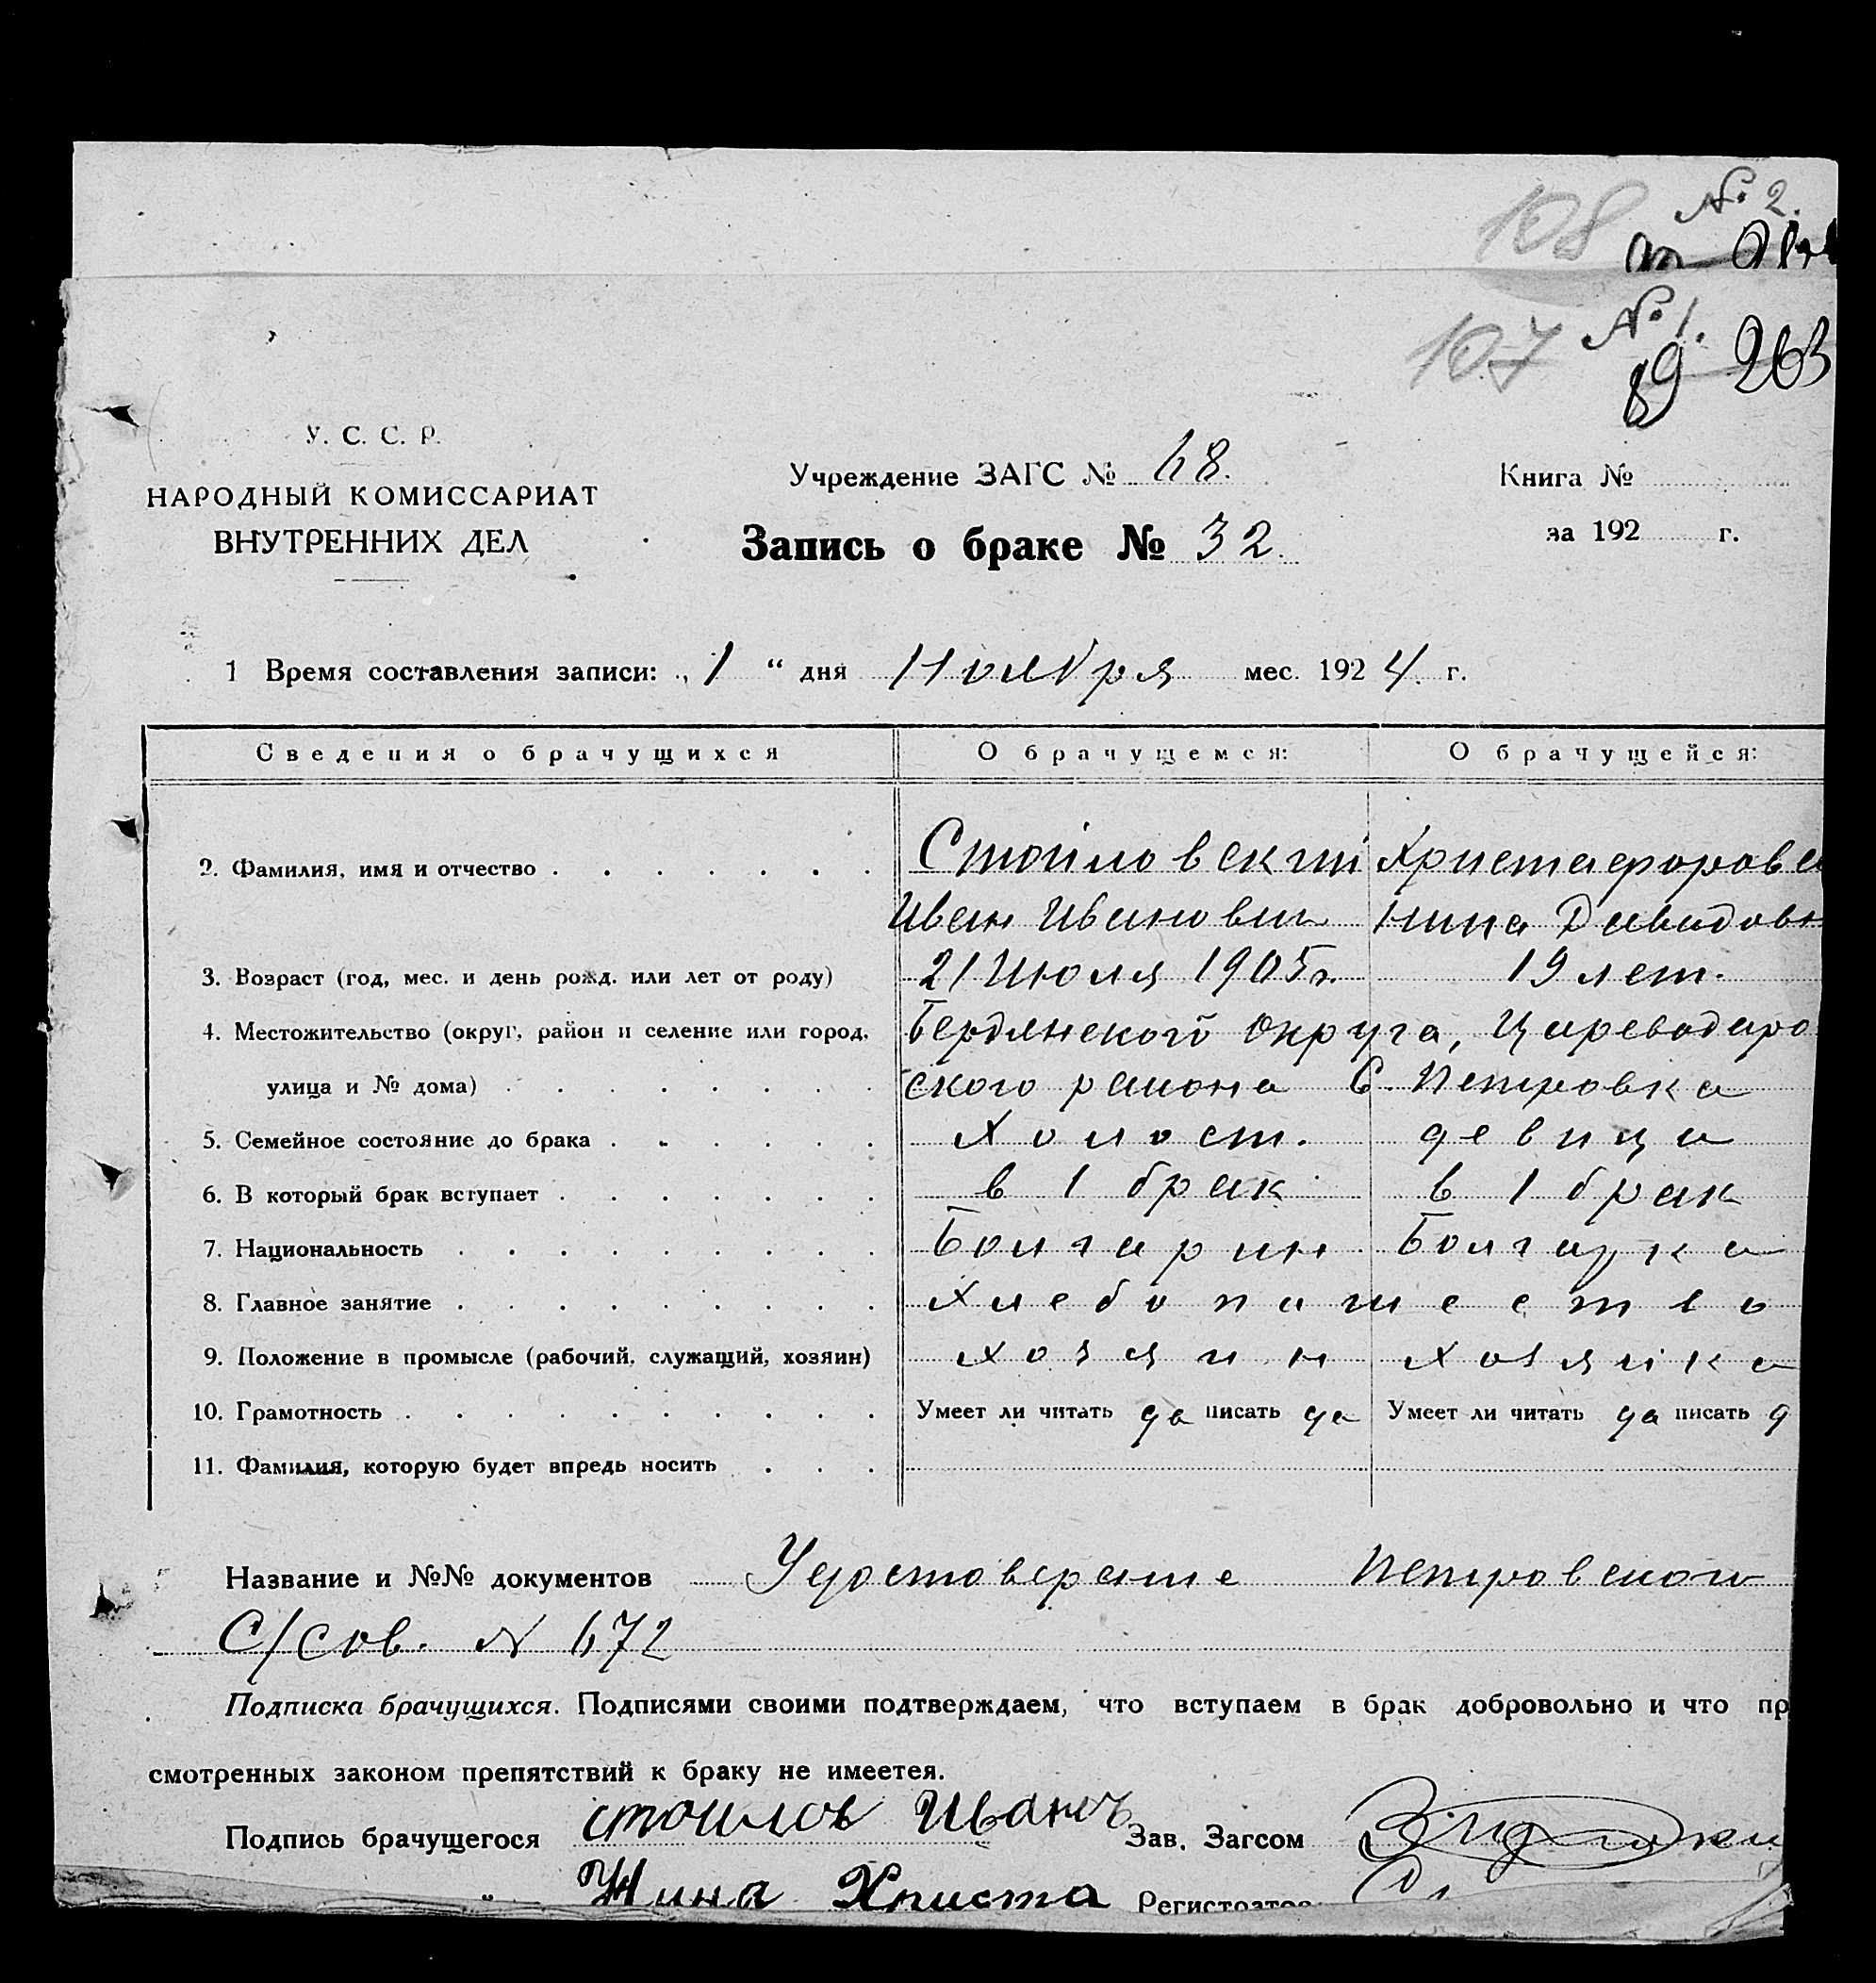 108 № 2.
107 № 1.
89 263
У. С. С. Р.
НАРОДНЫЙ КОМИССАРИАТ
ВНУТРЕННИХ ДЕЛ
Учреждение ЗАГС № 68.
Книга №
Запись о браке № 32.
за 192 г.
1 Время составления записи: „ 1 “ дня Ноября мес. 1924. г.
Сведения о брачущихся О брачущемся: О брачущейся:
2. Фамилия, имя и отчество Стоиловский Христафоровa
Иван Иванович Нина Давидовн
3. Возраст (год, мес. и день рожд. или лет от роду) 21 Июля 1905 г. 19 лет.
4. Местожительство (округ, район и селение или город, Бердянского округа, Цареводаро
улица и № дома) ского района С. Петровка
5. Семейное состояние до брака Холост. девица
6. В который брак вступает в 1 брак в 1 брак
7. Национальность Болгарин Болгарка
8. Главное занятие Хлебопашество
9. Положение в промысле (рабочий, служащий, хозяин) хозяин хозяйка
10. Грамотность Умеет ли читать да писать да Умеет ли читать да писать д
11. Фамилия, которую будет впредь носить
Название и №№ документов Удостоверение Петровского
С/сов. N 672
Подписка брачущихся. Подписями своими подтверждаем, что вступаем в брак добровольно и что пр
смотренных законом препятствий к браку не имеетея.
Подпись брачущегося стоилов Иванъ Зав. Загсом
„ Нина Христа Регистратор